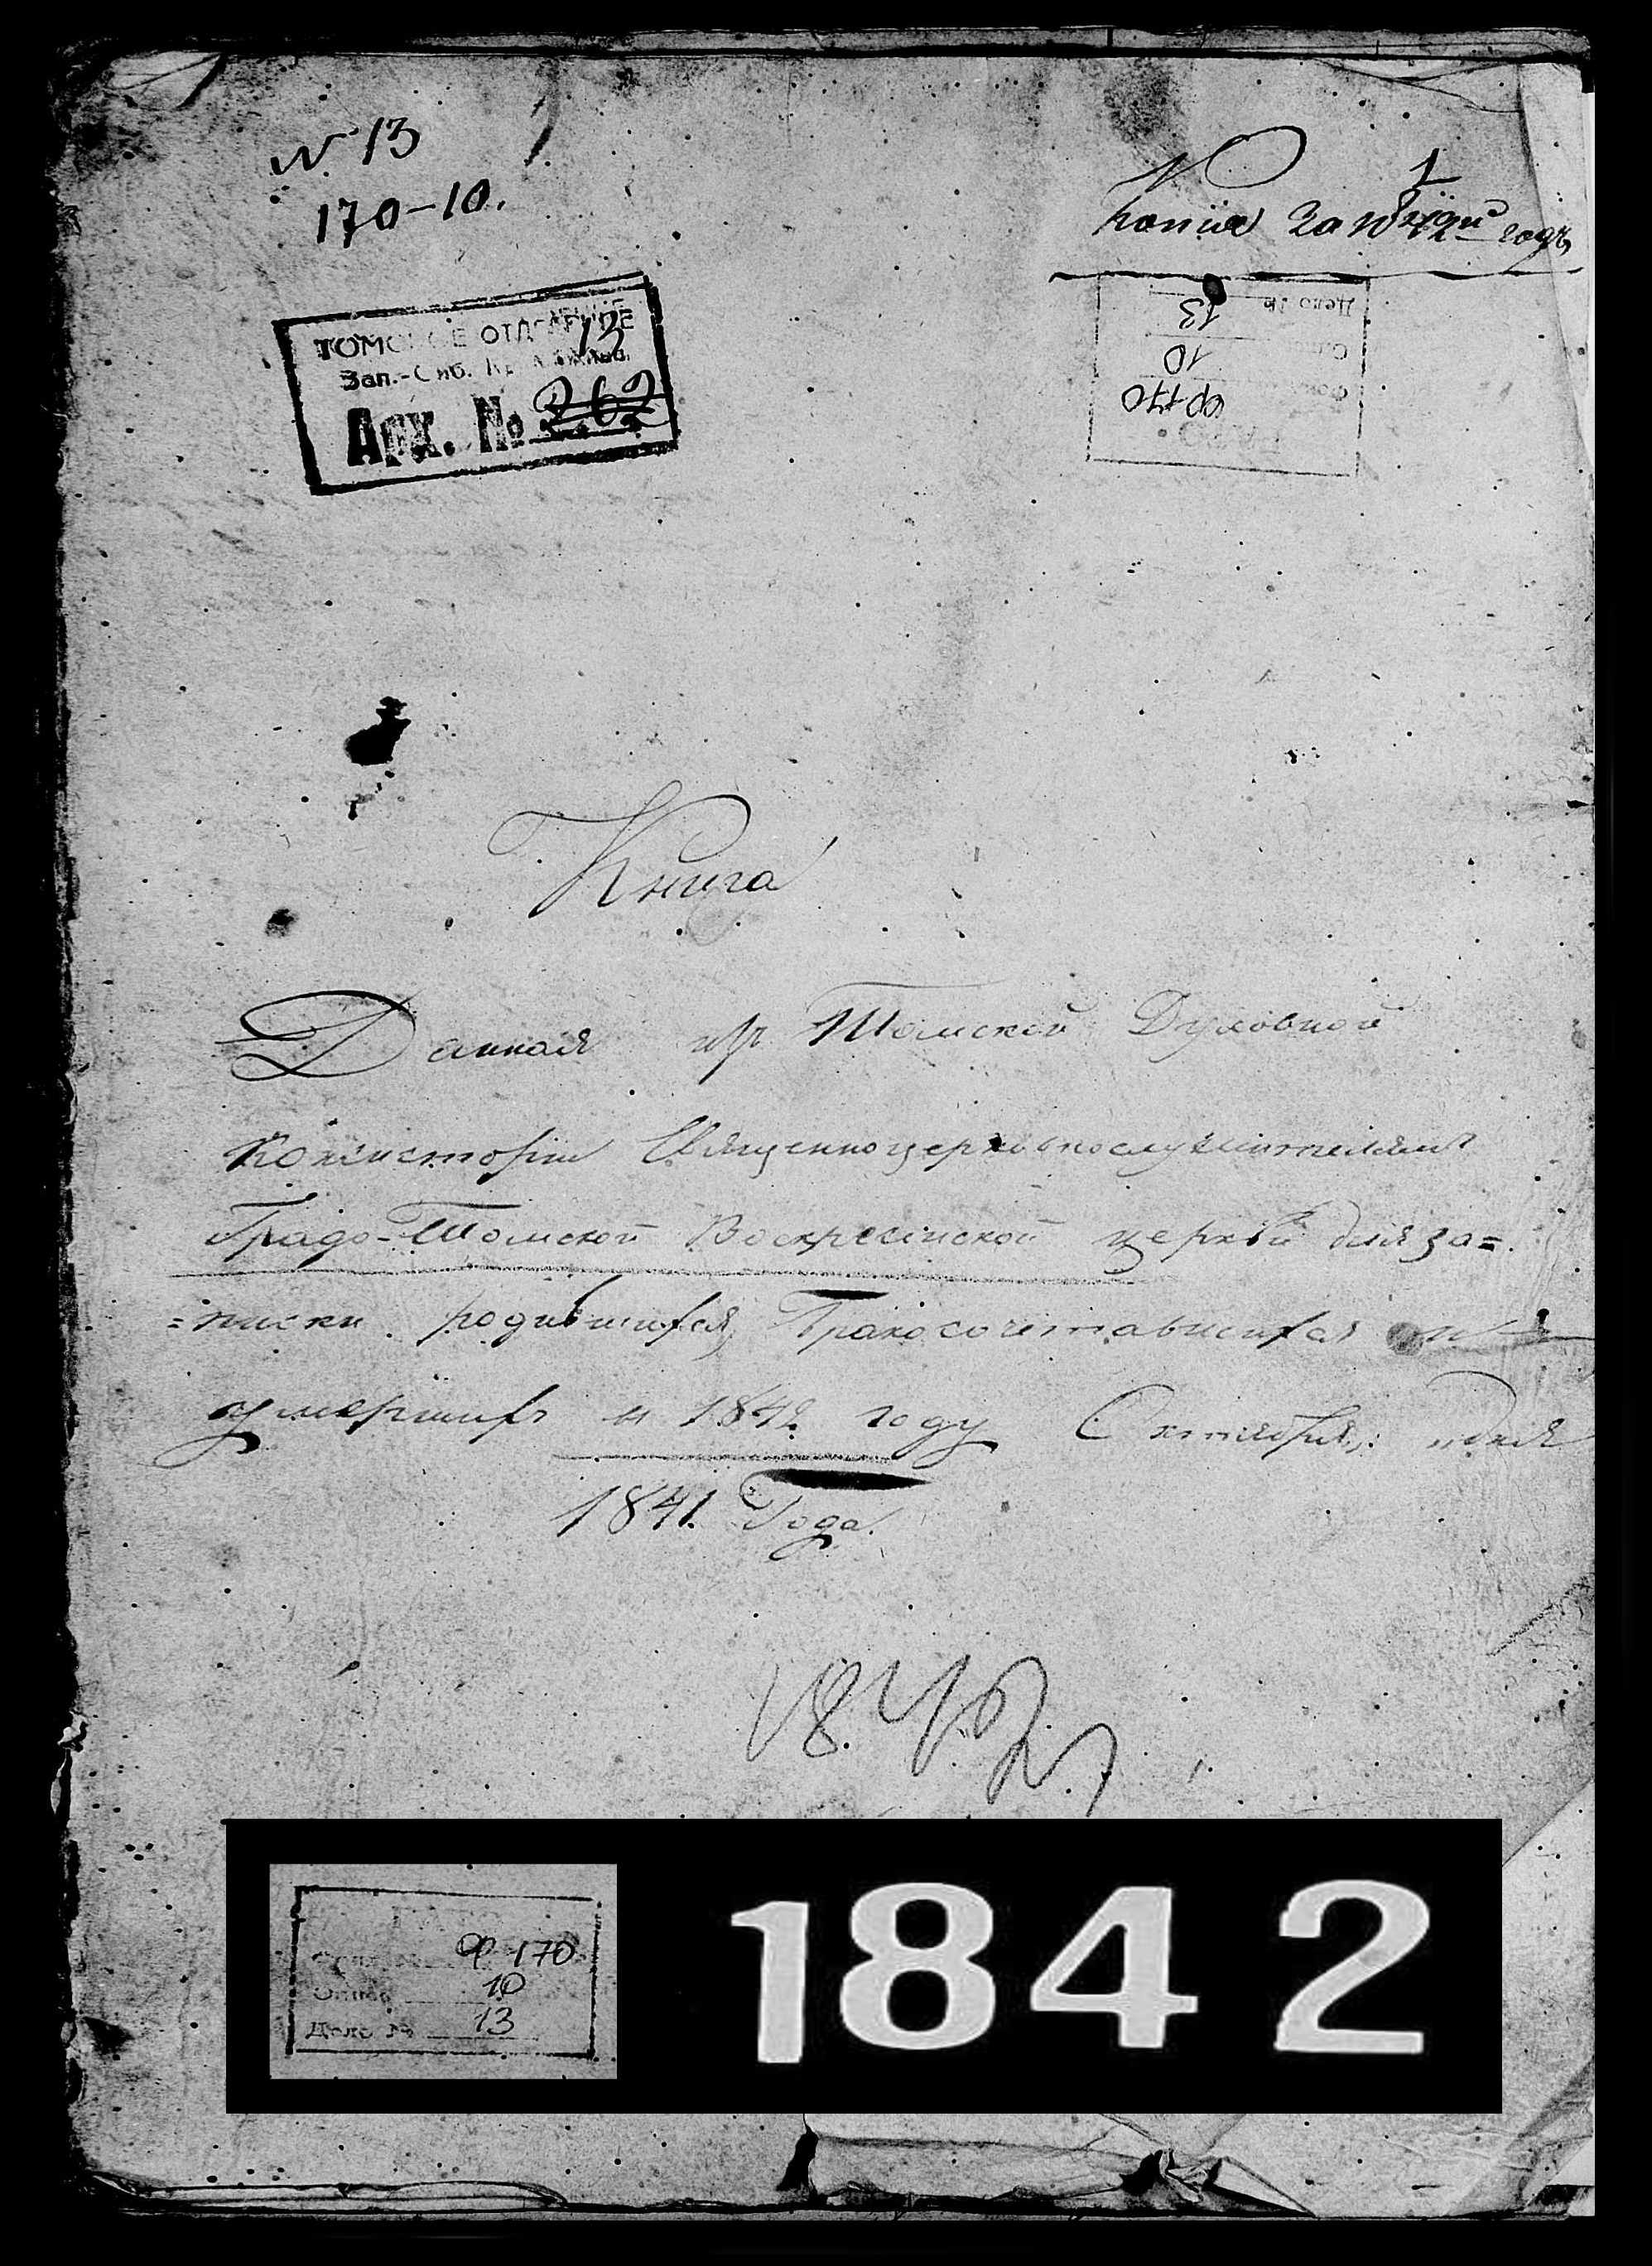 N 13
170-10.
1
Копия за 1842й годъ
ТОМСКОЕ ОТДЕЛЕНИЕ
Зап.-Сиб.
13
Арх. № 262
Дело № 13
10
ф 170
Книга
Данная изъ Томской Духовной
Консисторiи Священноцерковнослужителямъ
Градо-Томской Воскресенской церкви для за=
=писки родившихся, Бракосочетавшихся и
умершихъ въ 1842 году Октября „ дня
1841. Года.
1842
1842
Ф 170
Опись 10
Дело № 13